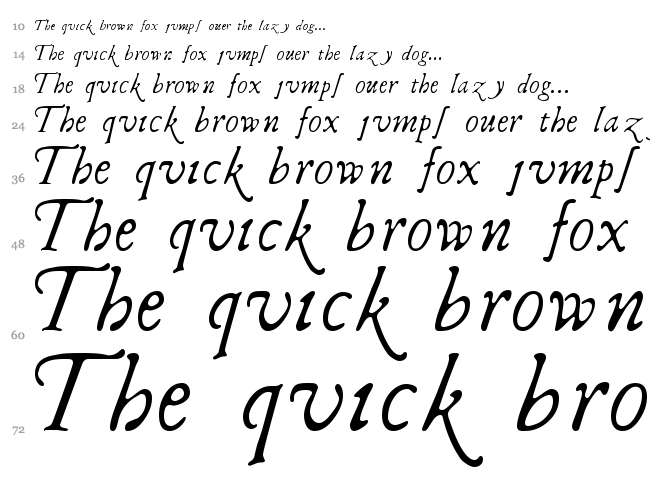 10 The qvıck brown fox ȷvmpſ ouer the lazy dog...
14 The qvıck brown fox ȷvmpſ ouer the lazy dog...
18 The qvıck brown fox ȷvmpſ ouer the lazy dog...
24 The qvıck brown fox ȷvmpſ ouer the laz
36 The qvıck brown fox ȷvmpſ
48 The qvıck brown fox
60 The qvıck brown
72 The qvıck bro